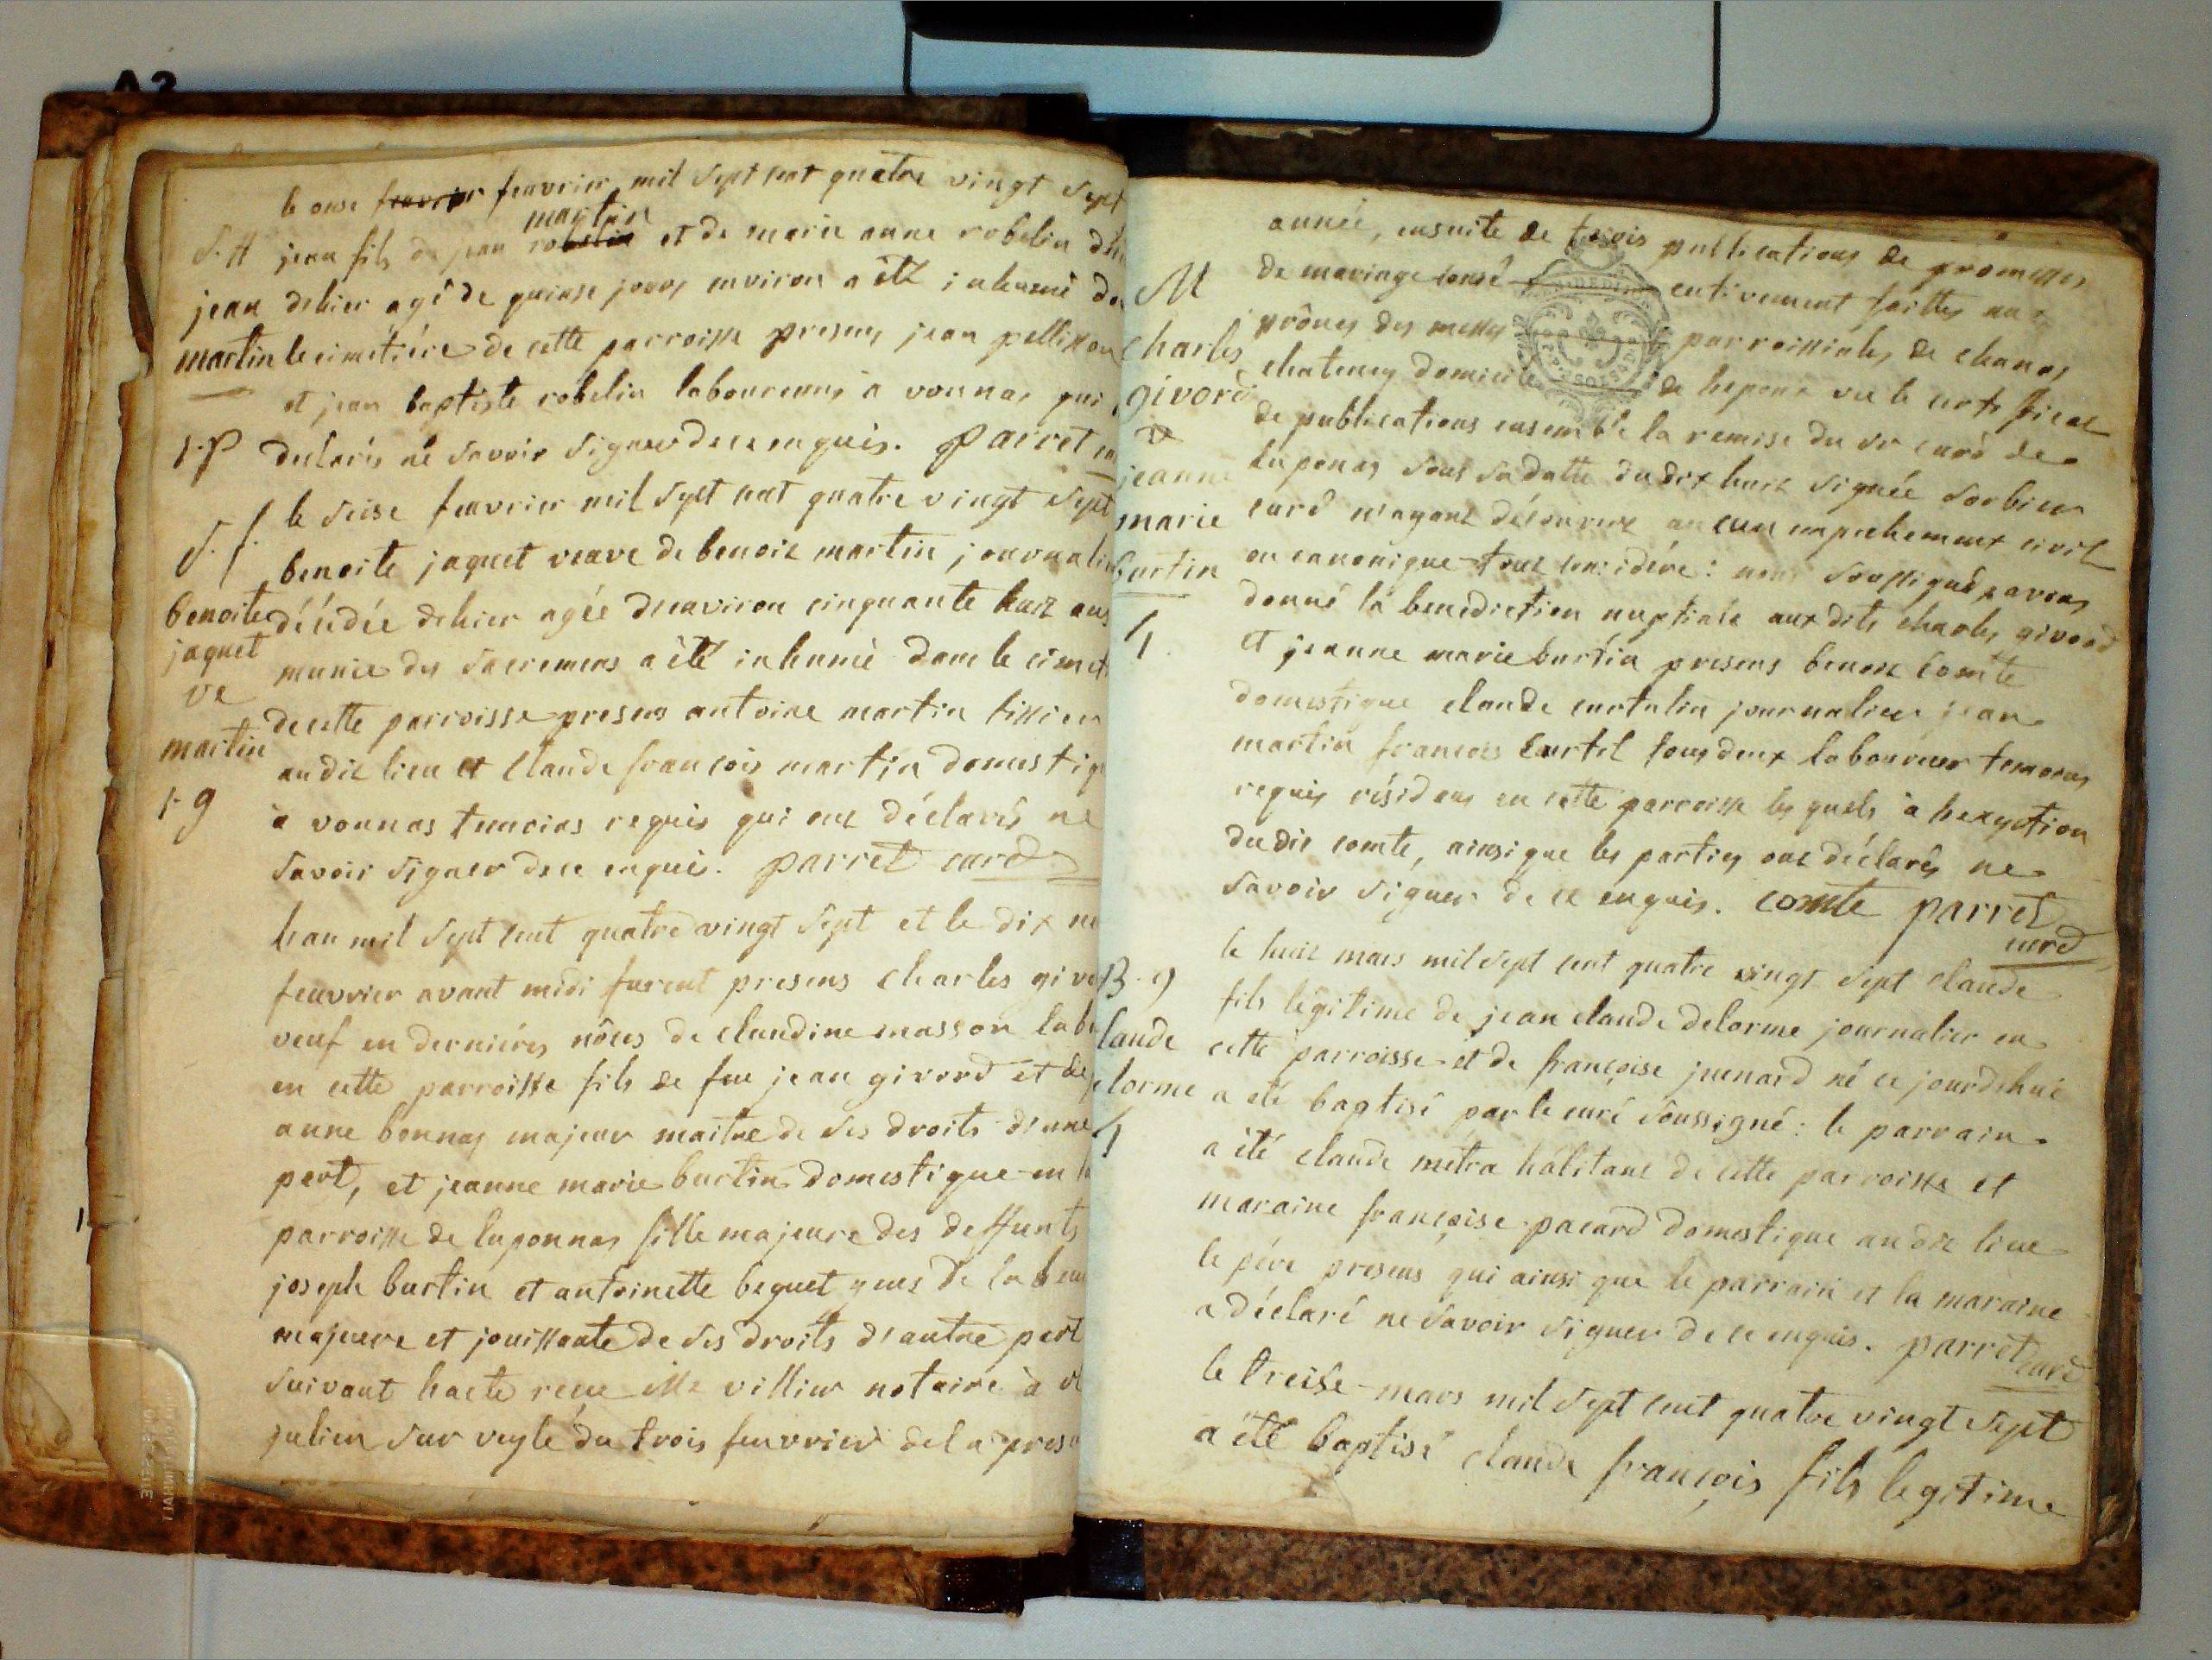 A2
le onse feuvrier mil sept cent quatre vingt sept
martin
S. H jean fils de jean robelin et de marie anne robelin
jean dehier agé de quinse jours environ a été inhumé
martin le cimétiére de cette parroisse presens jean pellisson
et jean baptiste robelin laboureurs à vonnas qui
declarés ne savoir signer de ce enquis. parret
le seise feuvrier mil sept cent quatre vingt sept
benoite jaquet veuve de benoit martin journali
benoite décédée dehier agée denviron cinquante huit ans
jaquet munie des sacremens a été inhumé dans le cimet
ve
de cette parroisse presens antoine martin tissier
martin
au dit lieu et claude françois martin domestiq
1-9
à vonnas temoins requis qui ont déclarés ne
savoir signer de ce enquis. parret curé
lan mil sept cent quatre vingt sept et le dix ne
feuvrier avant midi furent presens charles givo
veuf en derniéres nôces de claudine masson lab
en cette parroisse fils de feu jean givord et de
anne bonnay majeur maitre de ses droits dune
pert, et jeanne marie burtin domestique en
parroisse de luponnas fille majeure des deffunts
joseph burtin et antoinette beguet
majeure et jouissante de ses droits dautre pert
suivant lacte reçu Me villier notaire à
julien sur veyle du trois feuvrier de la pres
année, ensuite de trois publications de promesses
de mariage consé cutivement faittes aux
M
prônes des messes parroissiales de chanos
charles
chatenay domicile de lepoux vu le certificat
givord
de publications ensemble la remise du sr curé de
&
luponas sous sa datte du dix huit signée sorbier
jeanne
curé nayant découvert aucun empechement civil
marie
ou canonique tout considéré: nous soussigné avons
burtin
donné la benediction nuptiale aux dits charles givord
et jeanne marie burtin presens benoit comte
domestique claude curtelin journalier jean
martin françois curtil tous deux laboureur temoins
requis résidens en cette parroisse les quels à lexeption
du dit comte, ainsi que les parties ont déclarés ne
savoir signer de ce enquis. comte parret
curé
le huit mars mil sept cent quatre vingt sept claude
B-9
fils légitime de jean claude delorme journalier en
laude
cette parroisse et de françoise juenard né ce jourdhui
elorme
a été baptisé par le curé soussigné: le parrain
a été claude métra habitant de cette parroisse et
maraine françoise pacard domestique au dit lieu
le pére presens qui ainsi que le parrain et la maraine
a déclaré ne savoir signer de ce enquis. parret curé
le treise mars mil sept cent quatre vingt sept
a été baptisé claude françois fils legitime